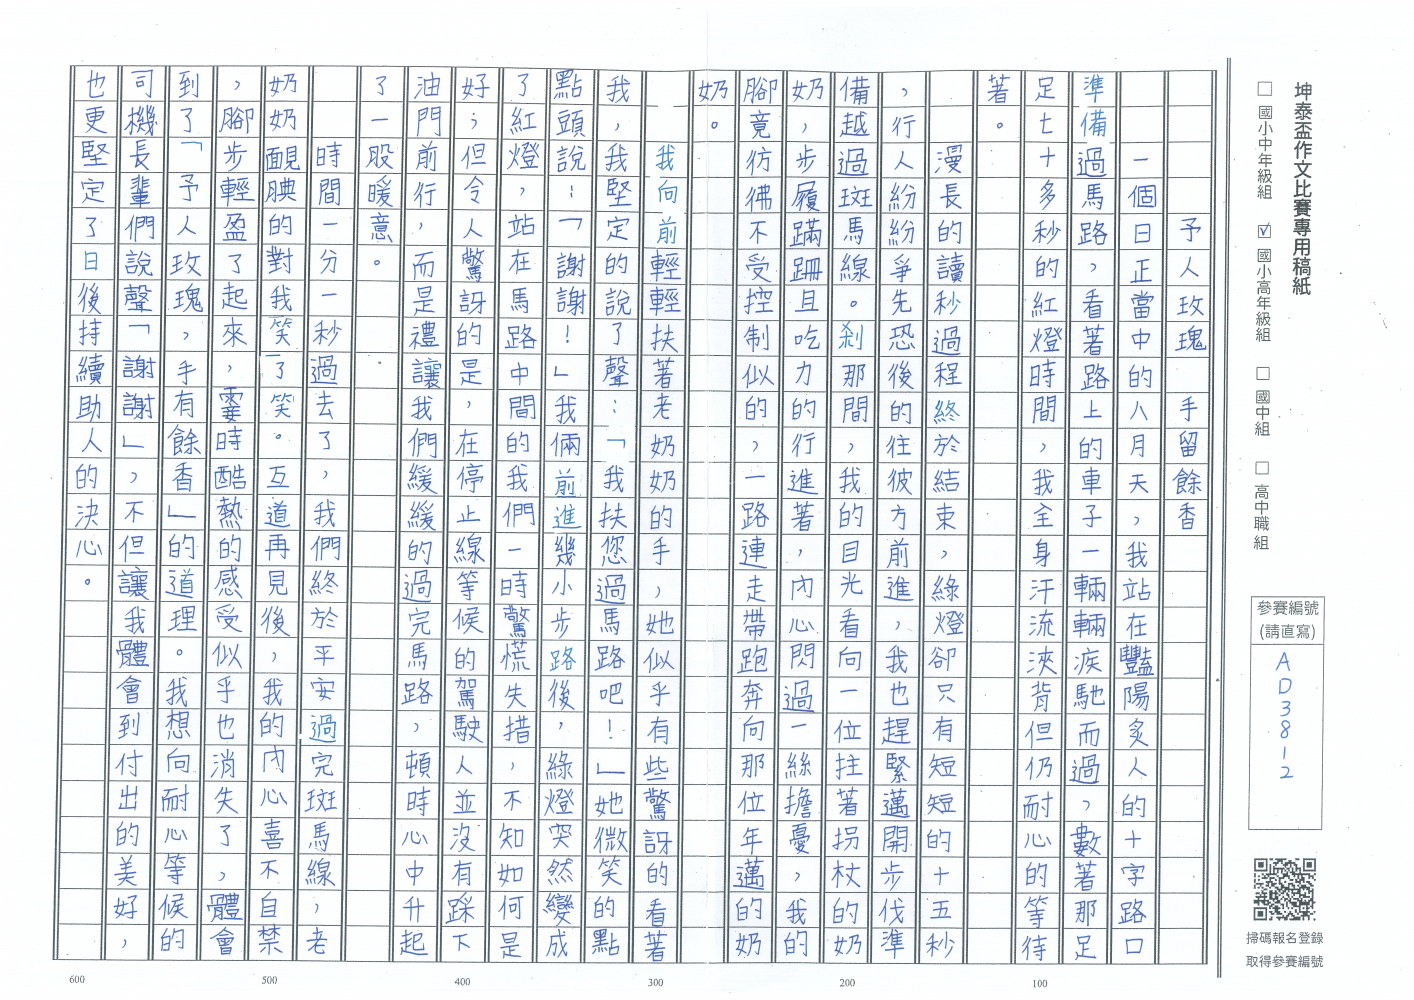 坤泰盃作文比賽專用稿紙
□ 國小中年級組 ☑ 國小高年級組 □ 國中組 □ 高中職組
參賽編號
(請直寫)
AD3812
掃碼報名登錄
取得參賽編號
予人玫瑰 手留餘香
一個日正當中的八月天，我站在豔陽炙人的十字路口
準備過馬路，看著路上的車子一輛輛疾馳而過，數著那足
足七十多秒的紅燈時間，我全身汗流浹背但仍耐心的等待
著。
漫長的讀秒過程終於結束，綠燈卻只有短短的十五秒
，行人紛紛爭先恐後的往彼方前進，我也趕緊邁開步伐準
備越過斑馬線。剎那間，我的目光看向一位拄著拐杖的奶
奶，步履蹣跚且吃力的行進著，內心閃過一絲擔憂，我的
腳竟彷彿不受控制似的，一路連走帶跑奔向那位年邁的奶
奶。
我向前輕輕扶著老奶奶的手，她似乎有些驚訝的看著
我，我堅定的說了聲：「我扶您過馬路吧！」她微笑的點
點頭說：「謝謝！」我倆前進幾小步路後，綠燈突然變成
了紅燈，站在馬路中間的我們一時驚慌失措，不知如何是
好；但令人驚訝的是，在停止線等候的駕駛人並沒有踩下
油門前行，而是禮讓我們緩緩的過完馬路，頓時心中升起
了一股暖意。
時間一分一秒過去了，我們終於平安過完斑馬線，老
奶奶靦腆的對我笑了笑。互道再見後，我的內心喜不自禁
，腳步輕盈了起來，霎時酷熱的感受似乎也消失了，體會
到了「予人玫瑰，手有餘香」的道理。我想向耐心等候的
司機長輩們說聲「謝謝」，不但讓我體會到付出的美好，
也更堅定了日後持續助人的決心。
100
200
300
400
500
600